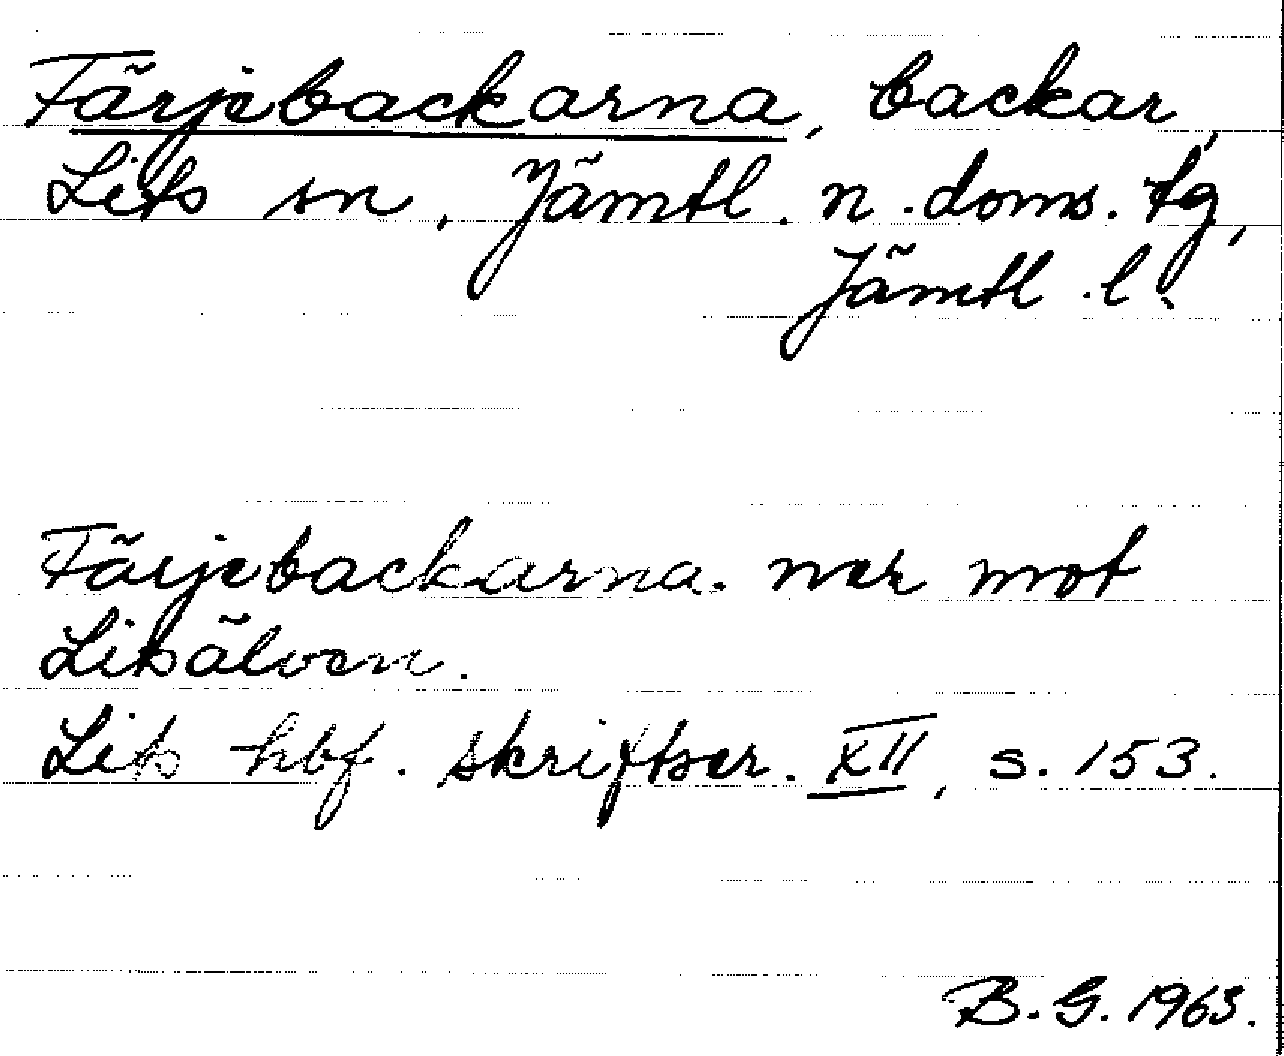 Färjebackarna, backar,
Lits sn, Jämtl. n. doms. tg,
Jämtl. l.
Färjebackarna ner mot
Litsälven.
Lits hbf. skriftser. XII, s. 153.
B. G. 1963.